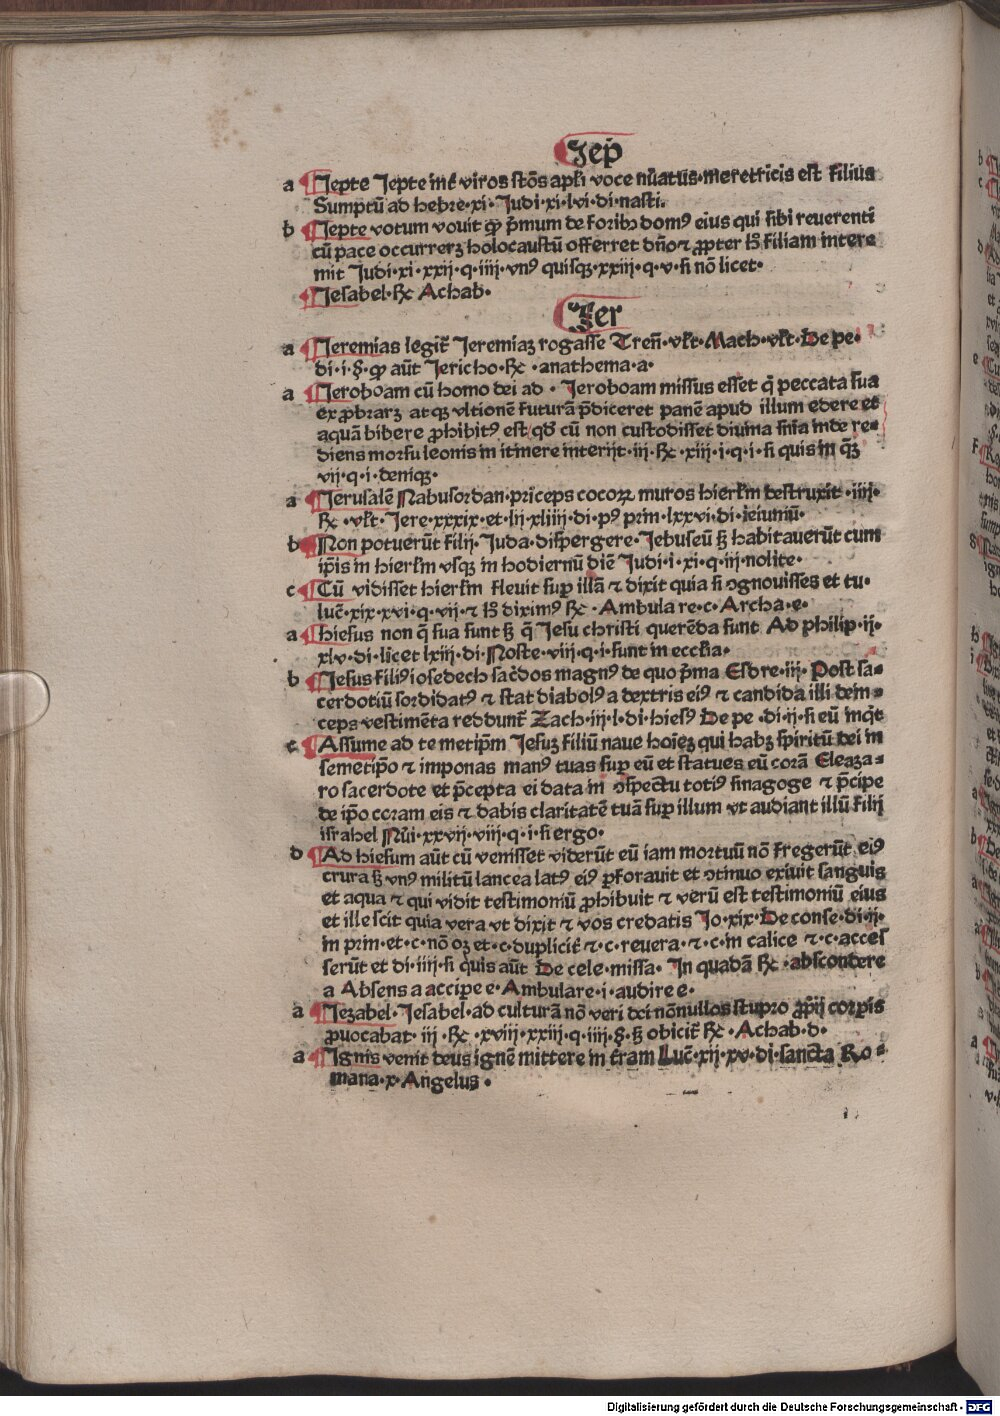 Jep̄
a Jepte Jepte int̄ viros stōs apl̄i voce nūatus·meretricis est filius
Sumptū ad hebre·xi· Judi·xi·lvi·di·nasti.
b Jepte votum vouit qꝫ p̄mum de foribꝫ domꝰ eius qui sibi reuerenti
cū pace occurrerꝫ holocaustū offerret dn̄o ⁊ ꝓpter hꝫ filiam intere
mit Judi·xi·xxij·q·iiij·vnꝰ quisqꝫ·xxiij·q·v·si nō licet·
Jesabel·℞ Achab·
Jer
a Jeremias legit᷑ Jeremiaꝫ rogasse Tren̄·vlt̄·Mach·vlt̄·De pe·
di·i·§·qꝫ aūt Jericho·℞·anathema·a·
a Jeroboam cū homo dei ad · Jeroboam missus esset q̄ peccata sua
exꝓbrarꝫ atqꝫ vltionē futurā p̄diceret panē apud illum edere et
aquā bibere ꝓhibitꝰ est qd̄ cū non custodisset diuina sn̄ia inde re⸗
diens morsu leonis in itinere interijt·iij·℞·xiij·i·q·i·si quis in qꝫ
vij·q·i·deniqꝫ·
a Jerusalē Nabusordan·priceps cocoꝝ muros hierl̄m destruxit·iiij·
℞·vlt̄·Jere·xxxix·et·lij·xliiij·di·pꝰ prin·lxxvi·di·ieiuniū·
b Non potuerūt filij·Juda·dispergere·Jebuseū sꝫ habitauerūt cum
ip̄is in hierl̄m vsqꝫ in hodiernū diē Judi·i·xi·q·iij·nolite·
c Cū vidisset hierl̄m fleuit suꝑ illā ⁊ dixit quia si ꝯgnouisses et tu·
luc̄·xix·xxvi·q·vij·⁊ hꝫ diximꝰ ℞·Ambulare·c·Archa·e·
a hiesus non q̄ sua sunt sꝫ q̄ Jesu christi querēda sunt Ad philip·ij·
xlv·di·licet lxiij·di·Noste·viij·q·i·sunt in eccl̄ia·
b Jesus filiꝰ iosedech sac̄dos magnꝰ de quo p̄ma Esdre·iij·Post sa⸗
cerdotiū sordidatꝰ ⁊ stat diabolꝰ a dextris eiꝰ ⁊ candida illi dein⸗
ceps vestimēta reddunt᷑ Zach·iij·l·di·hiesꝰ De pe·di·ij·si eū inq̄t
c Assume ad te metip̄m Jesuꝫ filiū naue hoīeꝫ qui habꝫ spiritū dei in
semetip̄o ⁊ imponas manꝰ tuas suꝑ eū et statues eū corā Eleaza⸗
ro sacerdote et p̄cepta ei data in ꝯspectu totiꝰ sinagoge ⁊ p̄cipe
de ip̄o ccram eis ⁊ dabis claritatē tuā suꝑ illum vt audiant illū filij
israhel Nūi·xxvij·viij·q·i·si ergo·
d Ad hiesum aūt cū venisset viderūt eū iam mortuū nō fregerūt eiꝰ
crura sꝫ vnꝰ militū lancea latꝰ eiꝰ ꝑforauit et ꝯtinuo exiuit sanguis
et aqua ⁊ qui vidit testimoniū ꝓhibuit ⁊ verū est testimoniū eius
et ille scit quia vera vt dixit ⁊ vos credatis Jo·xix·De conse·di·ij·
in prin·et·c·nō oꝫ et·c·duplicit᷑ ⁊·c·reuera·⁊·c·in calice ⁊·c·acces
serūt et di·iiij·si quis aūt De cele·missa· In quadā ℞·abscondere
a Absens a accipe e·Ambulare·i·audire e·
a Jezabel·Jesabel·ad culturā nō veri dei nōnullos stupro ꝓp̄ij corꝑis
ꝓuocabat· iij·℞·xviij·xxiij·q·iiij·§·sꝫ obicit᷑ ℞·Achab·d·
a Ignis venit deus ignē mittere in t̄ram Luc̄·xij·xv·di·sancta Ro⸗
mana·x·Angelus·
Digitalisierung gefördert durch die Deutsche Forschungsgemeinschaft - DFG